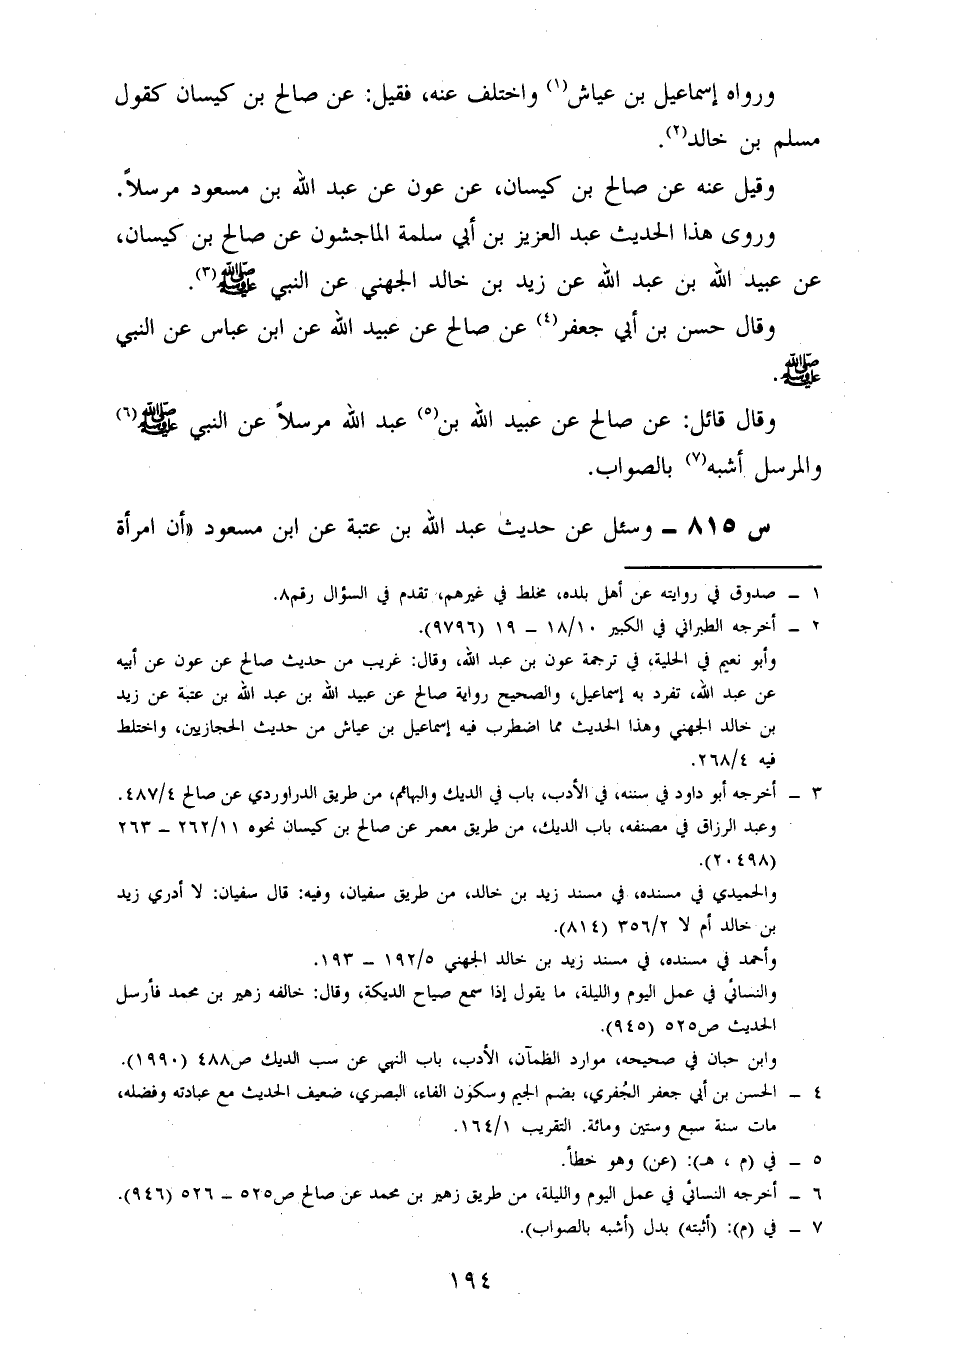 ورواه إسماعيل بن عياش(١) واختلف عنه، فقيل: عن صالح بن كيسان كقول
مسلم بن خالد(٢).
وقيل عنه عن صالح بن كيسان، عن عون عن عبد الله بن مسعود مرسلاً.
وروى هذا الحديث عبد العزيز بن أبي سلمة الماجشون عن صالح بن كيسان،
عن عبيد الله بن عبد الله عن زيد بن خالد الجهني عن النبي ﷺ(٣).
وقال حسن بن أبي جعفر(٤) عن صالح عن عبيد الله عن ابن عباس عن النبي
ﷺ.
وقال قائل: عن صالح عن عبيد الله بن(٥) عبد الله مرسلاً عن النبي ﷺ(٦)
والمرسل أشبه(٧) بالصواب.
س ٨١٥ ـ وسئل عن حديث عبد الله بن عتبة عن ابن مسعود «أن امرأة
١ ـ صدوق في روايته عن أهل بلده، مخلط في غيرهم، تقدم في السؤال رقم٨.
٢ ـ أخرجه الطبراني في الكبير ١٨/١٠ ـ ١٩ (٩٧٩٦).
وأبو نعيم في الحلية، في ترجمة عون بن عبد الله، وقال: غريب من حديث صالح عن عون عن أبيه
عن عبد الله، تفرد به إسماعيل، والصحيح رواية صالح عن عبيد الله بن عبد الله بن عتبة عن زيد
بن خالد الجهني وهذا الحديث مما اضطرب فيه إسماعيل بن عياش من حديث الحجازيين، واختلط
فيه ٢٦٨/٤.
٣ ـ أخرجه أبو داود في سننه، في الأدب، باب في الديك والبهائم، من طريق الدراوردي عن صالح ٤٨٧/٤.
وعبد الرزاق في مصنفه، باب الديك، من طريق معمر عن صالح بن كيسان نحوه ٢٦٢/١١ ـ ٢٦٣
(٢٠٤٩٨).
والحميدي في مسنده، في مسند زيد بن خالد، من طريق سفيان، وفيه: قال سفيان: لا أدري زيد
بن خالد أم لا ٣٥٦/٢ (٨١٤).
وأحمد في مسنده، في مسند زيد بن خالد الجهني ١٩٢/٥ ـ ١٩٣.
والنسائي في عمل اليوم والليلة، ما يقول إذا سمع صياح الديكة، وقال: خالفه زهير بن محمد فأرسل
الحديث ص٥٢٥ (٩٤٥).
وابن حبان في صحيحه، موارد الظمآن، الأدب، باب النهي عن سب الديك ص٤٨٨ (١٩٩٠).
٤ ـ الحسن بن أبي جعفر الجُفري، بضم الجيم وسكون الفاء، البصري، ضعيف الحديث مع عبادته وفضله،
مات سنة سبع وستين ومائة. التقريب ١٦٤/١.
٥ ـ في (م ، هـ): (عن) وهو خطأ.
٦ ـ أخرجه النسائي في عمل اليوم والليلة، من طريق زهير بن محمد عن صالح ص٥٢٥ ـ ٥٢٦ (٩٤٦).
٧ ـ في (م): (أثبته) بدل (أشبه بالصواب).
١٩٤